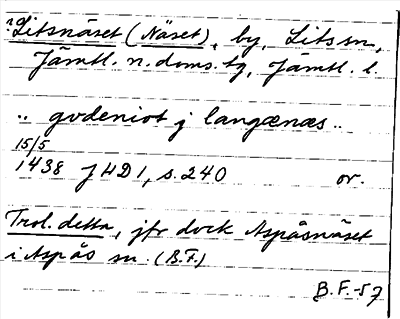 ?o Litsnäset (Näset), by, Lits sn,
Jämtl. n. doms. tg, Jämtl. l.
.. gudeniot j langænæs ..
15/5
1438 JHD 1, s. 240 or.
Trol. detta, jfr dock Aspåsnäset
i Aspås sn. (B.F.)
B.F.-57